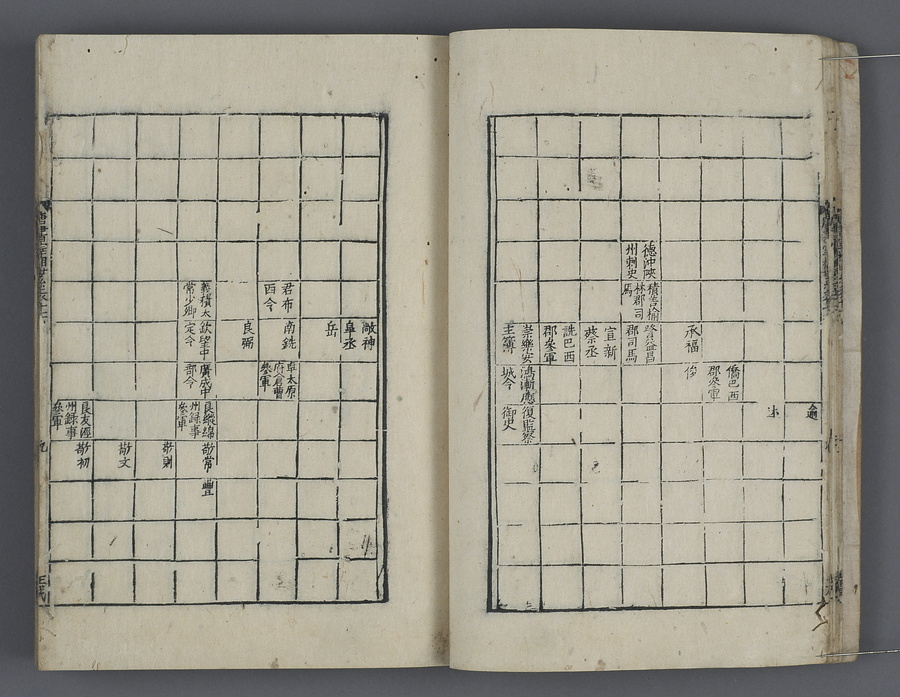 德沖陝
州刺史
積善榆
林郡司
馬
承福
晉益昌
郡司馬
宣新
蔡丞
詵巴西
郡參軍
崇樂安
主簿
僑巴西
郡參軍
俊
鴻漸應
城令
逾
述
復監察
御史
君布
西令
義積太
常少卿
敵神
阜丞
岳
南銑
良弼
欽望中
定令
卓太原
府倉曹
參軍
廣成中
部令
良縱綿
州錄事
參軍
良友涇
州錄事
參軍
敬常
敬則
敬文
敬初
豐
九